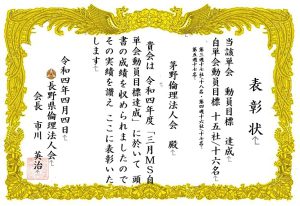 表彰状
当該単会 動員目標 達成
自単会動員目標 十五社/十六名
茅野倫理法人会 殿
貴会は 令和四年度「三月MS自
単会動員目標達成」に於いて 頭
書の成績を収められましたので
その実績を讃え ここに表彰いた
します
令和四年四月四日
長野県倫理法人会
会長 市川 英治